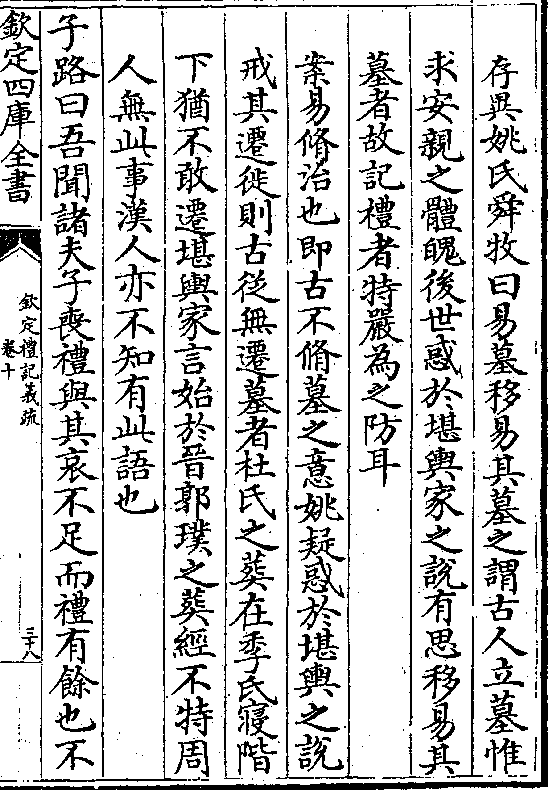 存異姚氏舜牧曰易墓移易其墓之謂古人立墓惟
求安親之體魄後世惑於堪輿家之說有思移易其
墓者故記禮者特嚴為之防耳
案易脩治也即古不脩墓之意姚疑惑於堪輿之說
戒其遷徙則古從無遷墓者杜氏之葬在季氏寢階
下猶不敢遷堪輿家言始於晉郭璞之葬經不特周
人無此事漢人亦不知有此語也
子路曰吾聞諸夫子喪禮與其哀不足而禮有餘也不
欽定四庫全書
欽定禮記義疏
卷十
三十八